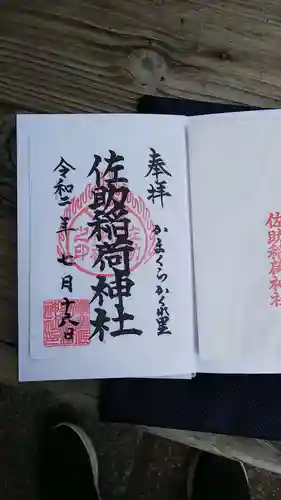 奉拝
かまくらかくれ里
佐助稲荷神社
令和二年七月十八日
佐助稲荷神社